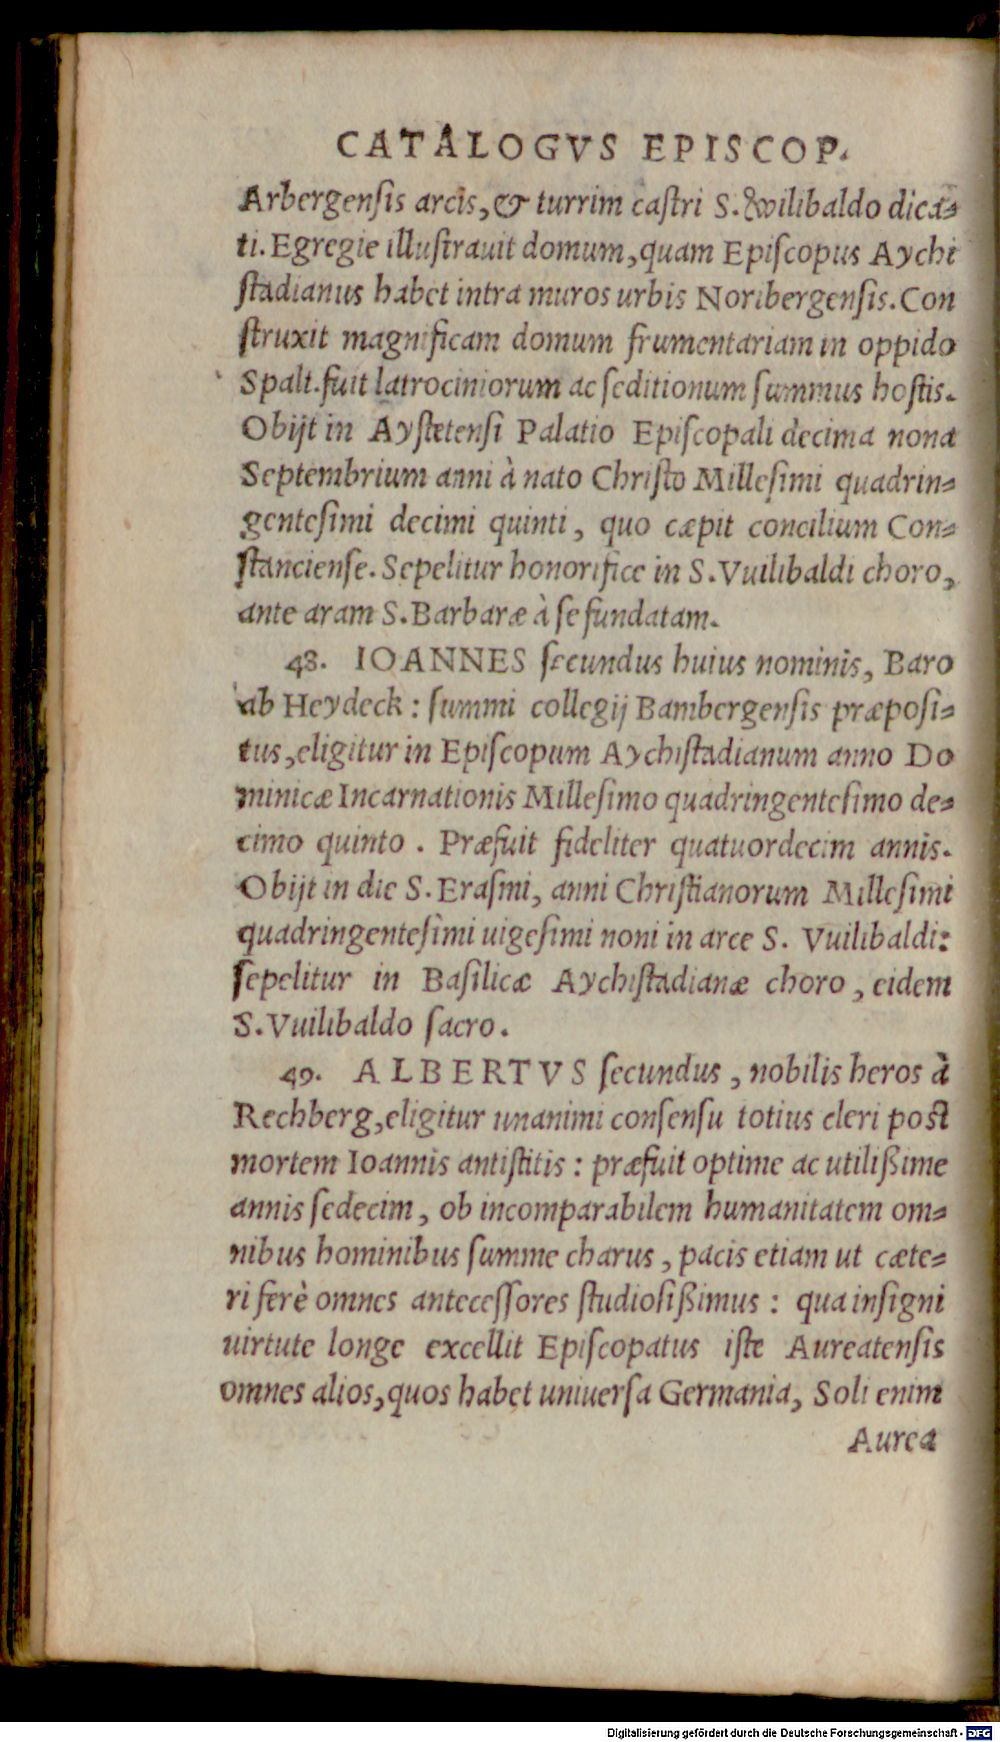 CATALOGVS EPISCOP.
Arbergensis arcis, & turrim castri S. Wilibaldo dica-
ti. Egregie illustrauit domum, quam Episcopus Aychi
stadianus habet intra muros urbis Noribergensis. Con
struxit magnificam domum frumentariam in oppido
Spalt. fuit latrociniorum ac seditionum summus hostis.
Obijt in Aystetensi Palatio Episcopali decima nona
Septembrium anni à nato Christo Millesimi quadrin-
gentesimi decimi quinti, quo cæpit concilium Con-
stanciense. Sepelitur honorifice in S. Vuilibaldi choro,
ante aram S. Barbaræ à se fundatam.
48. IOANNES secundus huius nominis, Baro
ab Heydeck: summi collegij Bambergensis præposi-
tus, eligitur in Episcopum Aychistadianum anno Do
minicæ Incarnationis Millesimo quadringentesimo de-
cimo quinto. Præfuit fideliter quatuordecim annis.
Obijt in die S. Erasmi, anni Christianorum Millesimi
quadringentesimi uigesimi noni in arce S. Vuilibaldi:
sepelitur in Basilicæ Aychistadianæ choro, eidem
S. Vuilibaldo sacro.
49. ALBERTVS secundus, nobilis heros à
Rechberg, eligitur unanimi consensu totius cleri post
mortem Ioannis antistitis: præfuit optime ac utilißime
annis sedecim, ob incomparabilem humanitatem om-
nibus hominibus summe charus, pacis etiam ut cæte-
ri ferè omnes antecessores studiosißimus: qua insigni
uirtute longe excellit Episcopatus iste Aureatensis
omnes alios, quos habet uniuersa Germania, Soli enim
Aurea
Digitalisierung gefördert durch die Deutsche Forschungsgemeinschaft - DFG